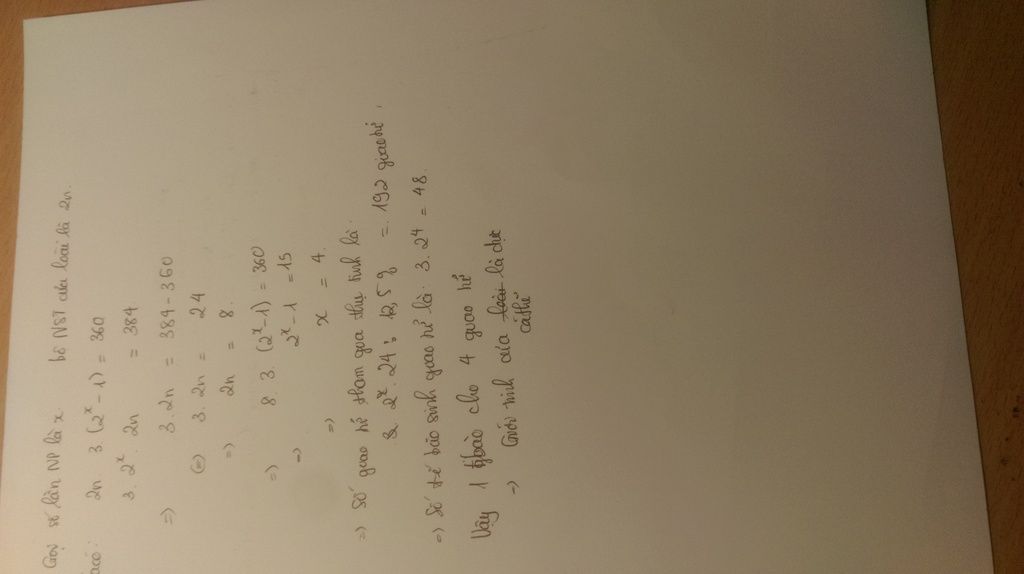 Gọi số lần NP là x bộ NST của loài là 2n.
có:
2n 3 (2^x - 1) = 360
3. 2^x. 2n = 384
=> 3. 2n = 384 - 360
(=) 3. 2n = 24
=> 2n = 8.
=> 8 3. (2^x - 1) = 360
=> 2^x - 1 = 15
=> x = 4.
=> Số giao tử tham gia thụ tinh là
3. 2^x. 24 : 12,5% = 192 giao tử.
=> Số tế bào sinh giao tử là: 3. 2^4 = 48.
Vậy 1 tbào cho 4 giao tử
-> Giới tính của loài là đực
cá thể